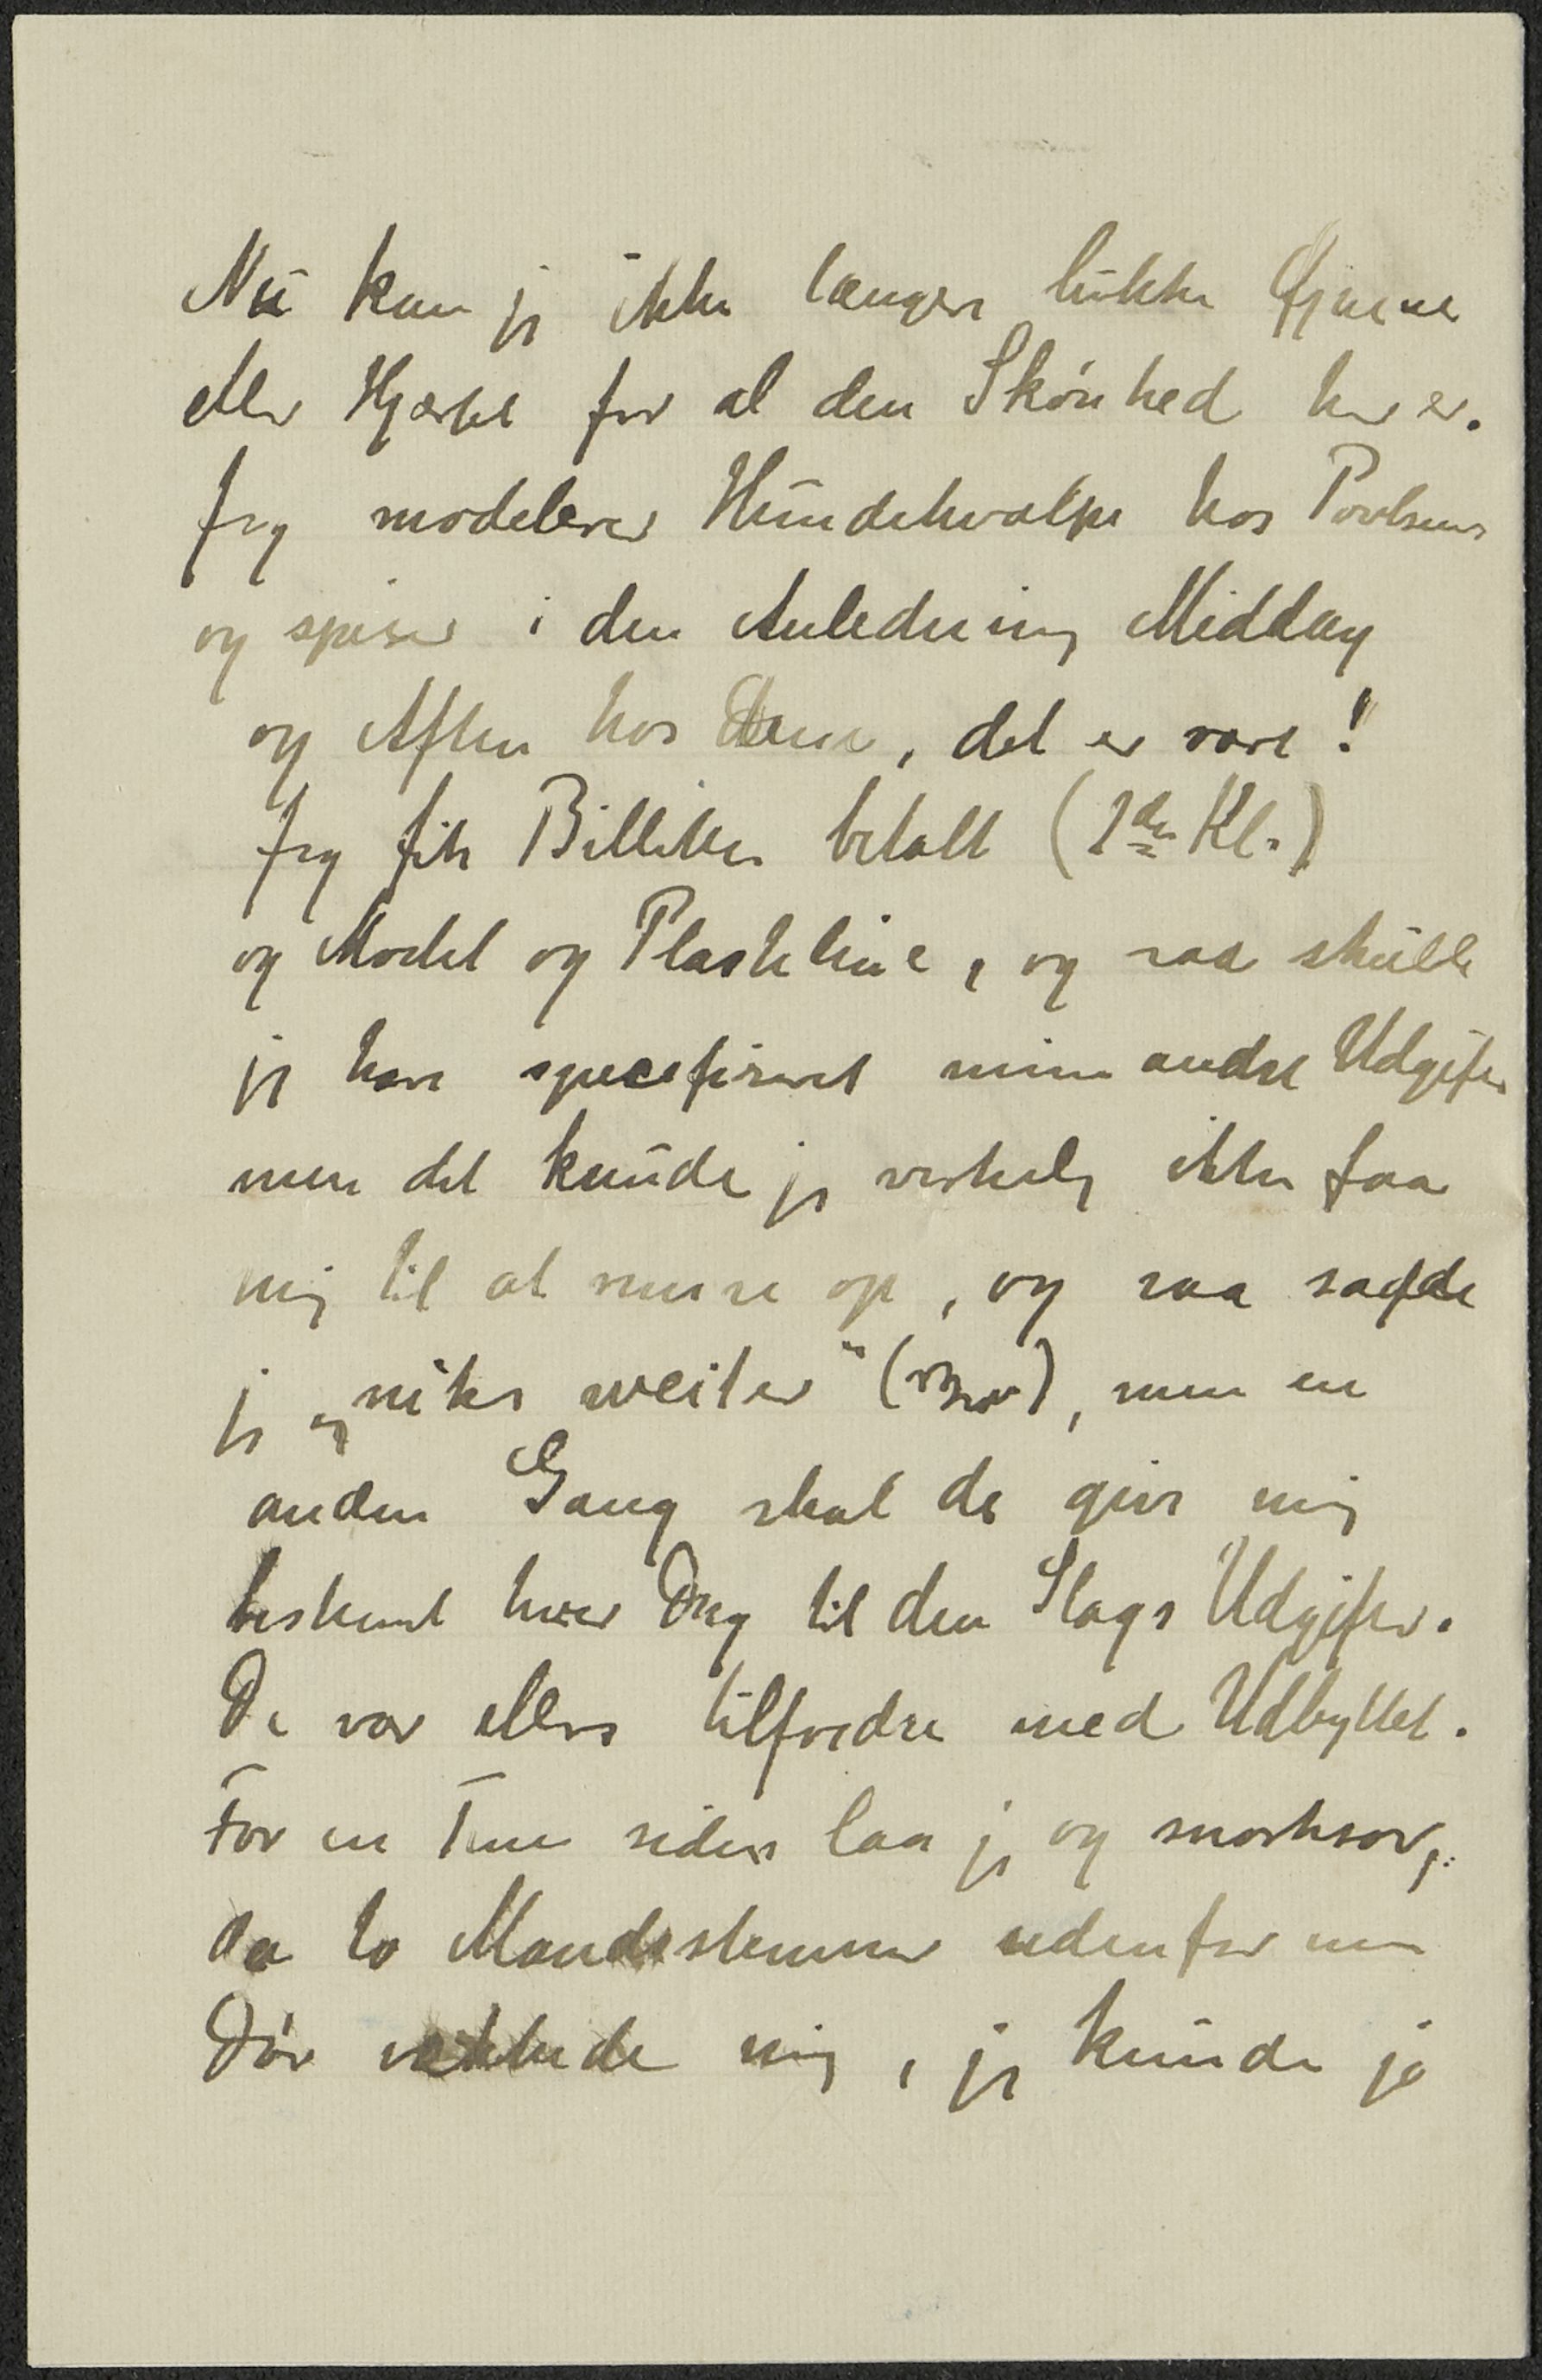 Nu kan jeg ikke længere lukke Øjnene
eller Hjærtet for al den Skønhed her er.
Jeg modelerer Hundehvalpe hos Povlsens
og spiser i den Anledning Middag
og Aften hos dem, det er rart!
Jeg fik Billetten betalt (2den Kl.)
og Model og Plasteline, og saa skulle
jeg have specefiseret mine andre Udgifter
men det kunde jeg virkelig ikke faa
mig til at remse op, og saa sagde
jeg „niks weiter“ , men en
anden Gang skal de give mig
bestemt hver Dag til den Slags Udgifter.
De var ellers tilfredse med Udbyttet.
For en Time siden laa jeg og snorksov,
da to Mandsstemmer udenfor min
Dør vækkede mig, jeg kunde jo